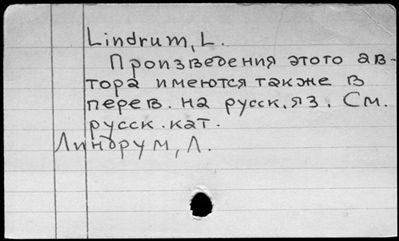 Lindrum, L.
Произведения этого ав-
тора имеются также в
перев. на русск. яз. См.
русск. кат.
Линдрум, Л.